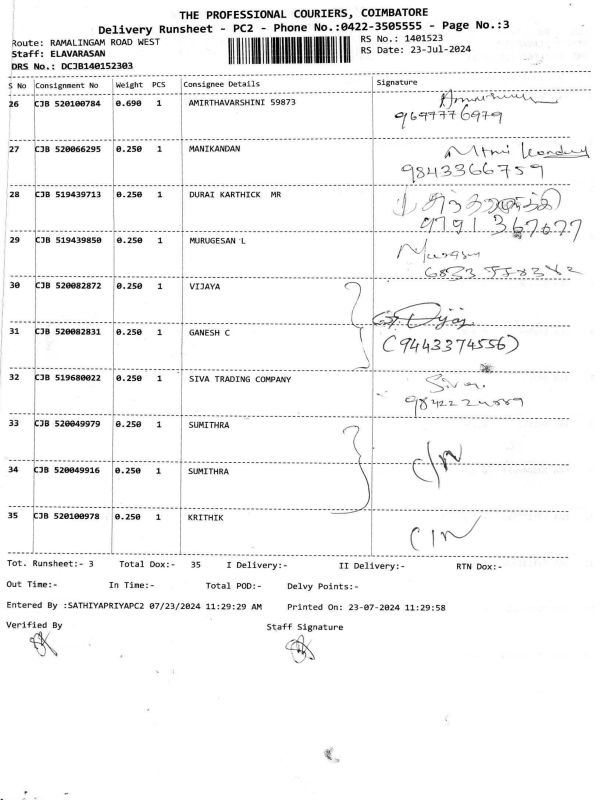 THE PROFESSIONAL COURIERS, COIMBATORE
Delivery Runsheet - PC2 - Phone No.:0422-3505555 - Page No.:3
Route: RAMALINGAM ROAD WEST RS No.: 1401523
Staff: ELAVARASAN RS Date: 23-Jul-2024
DRS No.: DCJB140152303
S No Consignment No Weight PCS Consignee Details Signature
26 CJB 520100784 0.690 1 AMIRTHAVARSHINI 59873
9697776979
27 CJB 520066295 0.250 1 MANIKANDAN
9843366759
28 CJB 519439713 0.250 1 DURAI KARTHICK MR
9791367677
29 CJB 519439850 0.250 1 MURUGESAN L
30 CJB 520082872 0.250 1 VIJAYA
31 CJB 520082831 0.250 1 GANESH C
(9443374556)
32 CJB 519680022 0.250 1 SIVA TRADING COMPANY
Siva.
33 CJB 520049979 0.250 1 SUMITHRA
C/N
34 CJB 520049916 0.250 1 SUMITHRA
35 CJB 520100978 0.250 1 KRITHIK
C/N
Tot. Runsheet:- 3 Total Dox:- 35 I Delivery:- II Delivery:- RTN Dox:-
Out Time:- In Time:- Total POD:- Delvy Points:-
Entered By :SATHIYAPRIYAPC2 07/23/2024 11:29:29 AM Printed On: 23-07-2024 11:29:58
Verified By Staff Signature